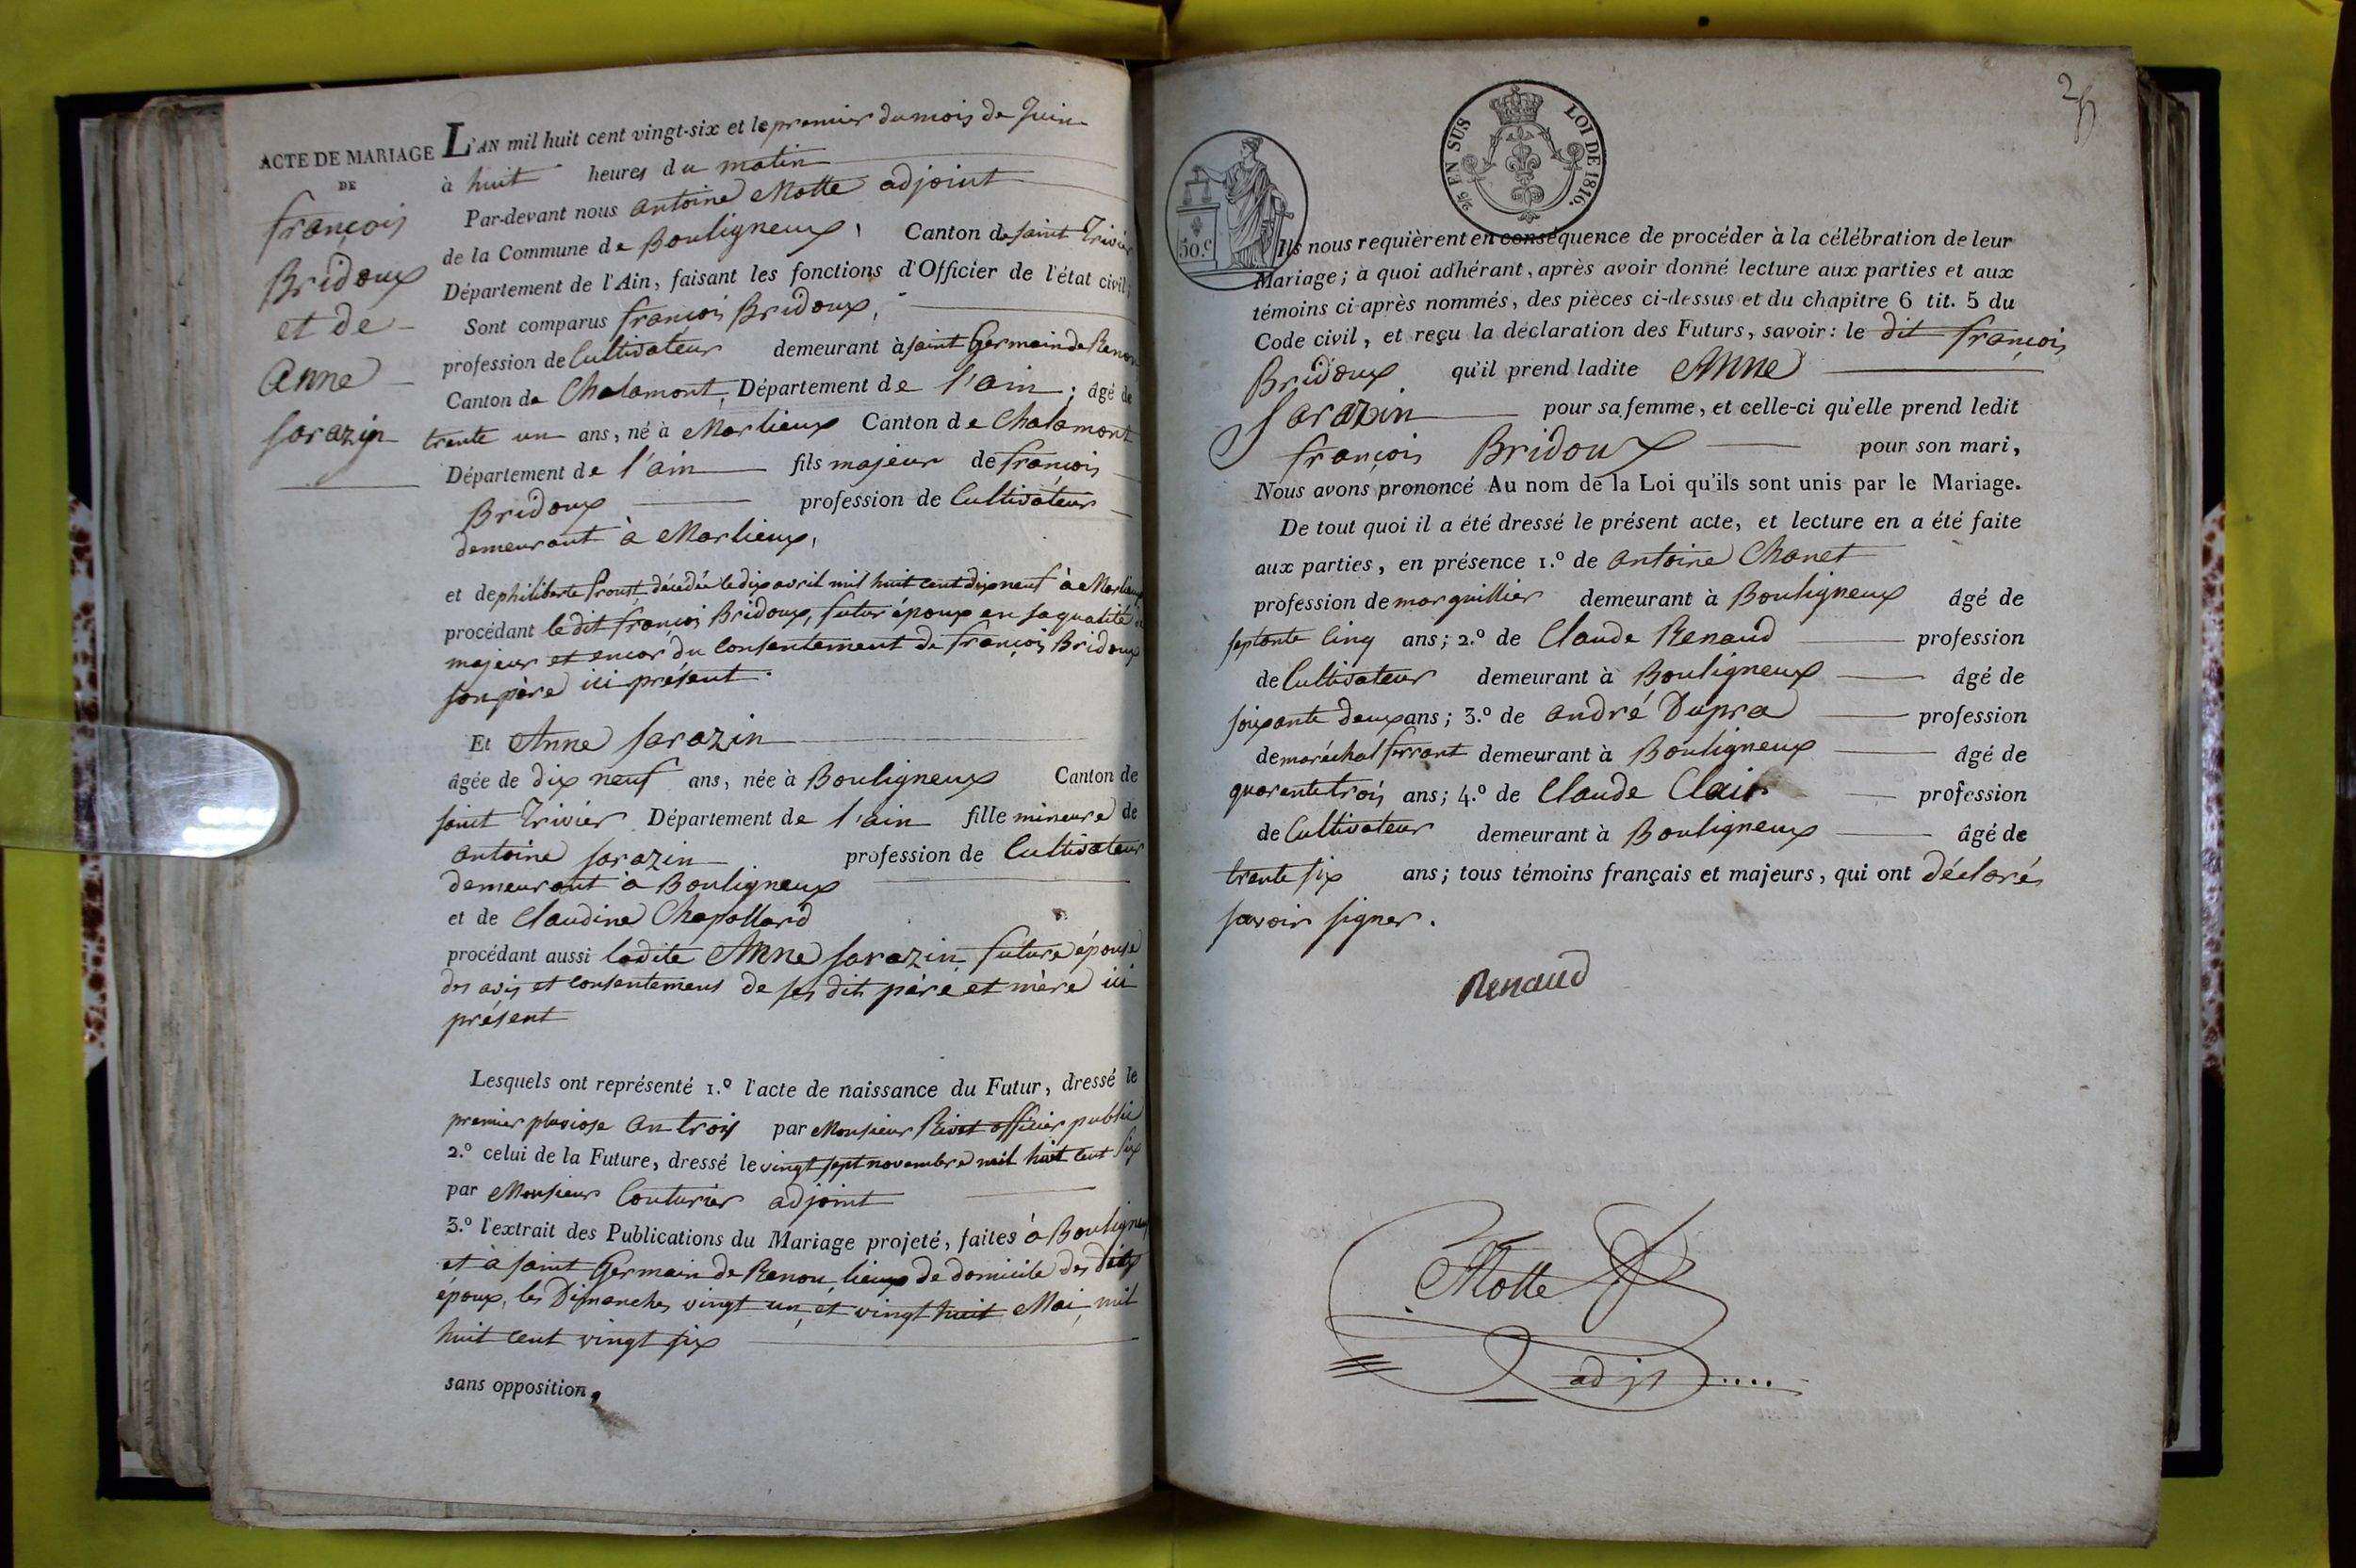 ACTE DE MARIAGE
DE
françois
Bridoux
et de
Anne
sarazin
L'AN mil huit cent vingt-six et le premier du mois de Juin
à huit heures du matin
Par-devant nous antoine Motte adjoint
de la Commune de Bouligneux, Canton de saint Trivier
Département de l'Ain, faisant les fonctions d'Officier de l'état civil;
Sont comparus françois Bridoux,
profession de Cultivateur demeurant à saint Germain de Renon
Canton de Chalamont, Département de l'ain; âgé de
trente un ans, né à Marlieux Canton de Chalamont
Département de l'ain fils majeur de françois
Bridoux profession de Cultivateur
demeurant à Marlieux,
et de philiberte Proust, décédée le dix avril mil huit cent dix neuf à Marlieux
procédant le dit françois Bridoux, futur époux en sa qualité de
majeur et encor du consentement de françois Bridoux
son père ici présent.
Et Anne sarazin
âgée de dix neuf ans, née à Bouligneux Canton de
saint Trivier Département de l'ain fille mineure de
antoine sarazin profession de Cultivateur
demeurant à Bouligneux
et de Claudine Chapollard
procédant aussi ladite Anne sarazin future épouse
des avis et consentemens de ses dits père et mère ici
présent
Lesquels ont représenté 1.º l'acte de naissance du Futur, dressé le
premier pluviose an trois par Monsieur Rivet officier public
2.º celui de la Future, dressé le vingt sept novembre mil huit cent six
par Monsieur Couturier adjoint
3.º l'extrait des Publications du Mariage projeté, faites à Bouligneux
et à saint Germain de Renon lieux de domicile des dits
époux, les Dimanches vingt un, et vingt huit Mai, mil
huit cent vingt six
sans opposition,
25
25 EN SUS LOI DE 1816.
50.c
Ils nous requièrent en conséquence de procéder à la célébration de leur
Mariage; à quoi adhérant, après avoir donné lecture aux parties et aux
témoins ci-après nommés, des pièces ci-dessus et du chapitre 6 tit. 5 du
Code civil, et reçu la déclaration des Futurs, savoir: le dit françois
Bridoux qu'il prend ladite Anne
Sarazin pour sa femme, et celle-ci qu'elle prend ledit
françois Bridoux pour son mari,
Nous avons prononcé Au nom de la Loi qu'ils sont unis par le Mariage.
De tout quoi il a été dressé le présent acte, et lecture en a été faite
aux parties, en présence 1.º de antoine Chanet
profession de marguillier demeurant à Bouligneux âgé de
septante cinq ans; 2.º de Claude Renaud profession
de Cultivateur demeurant à Bouligneux âgé de
soixante deux ans; 3.º de andré Dupra profession
de maréchal ferrant demeurant à Bouligneux âgé de
quarente trois ans; 4.º de Claude Clair profession
de Cultivateur demeurant à Bouligneux âgé de
trente six ans; tous témoins français et majeurs, qui ont déclarés
savoir signer.
Renaud
Motte
adjt